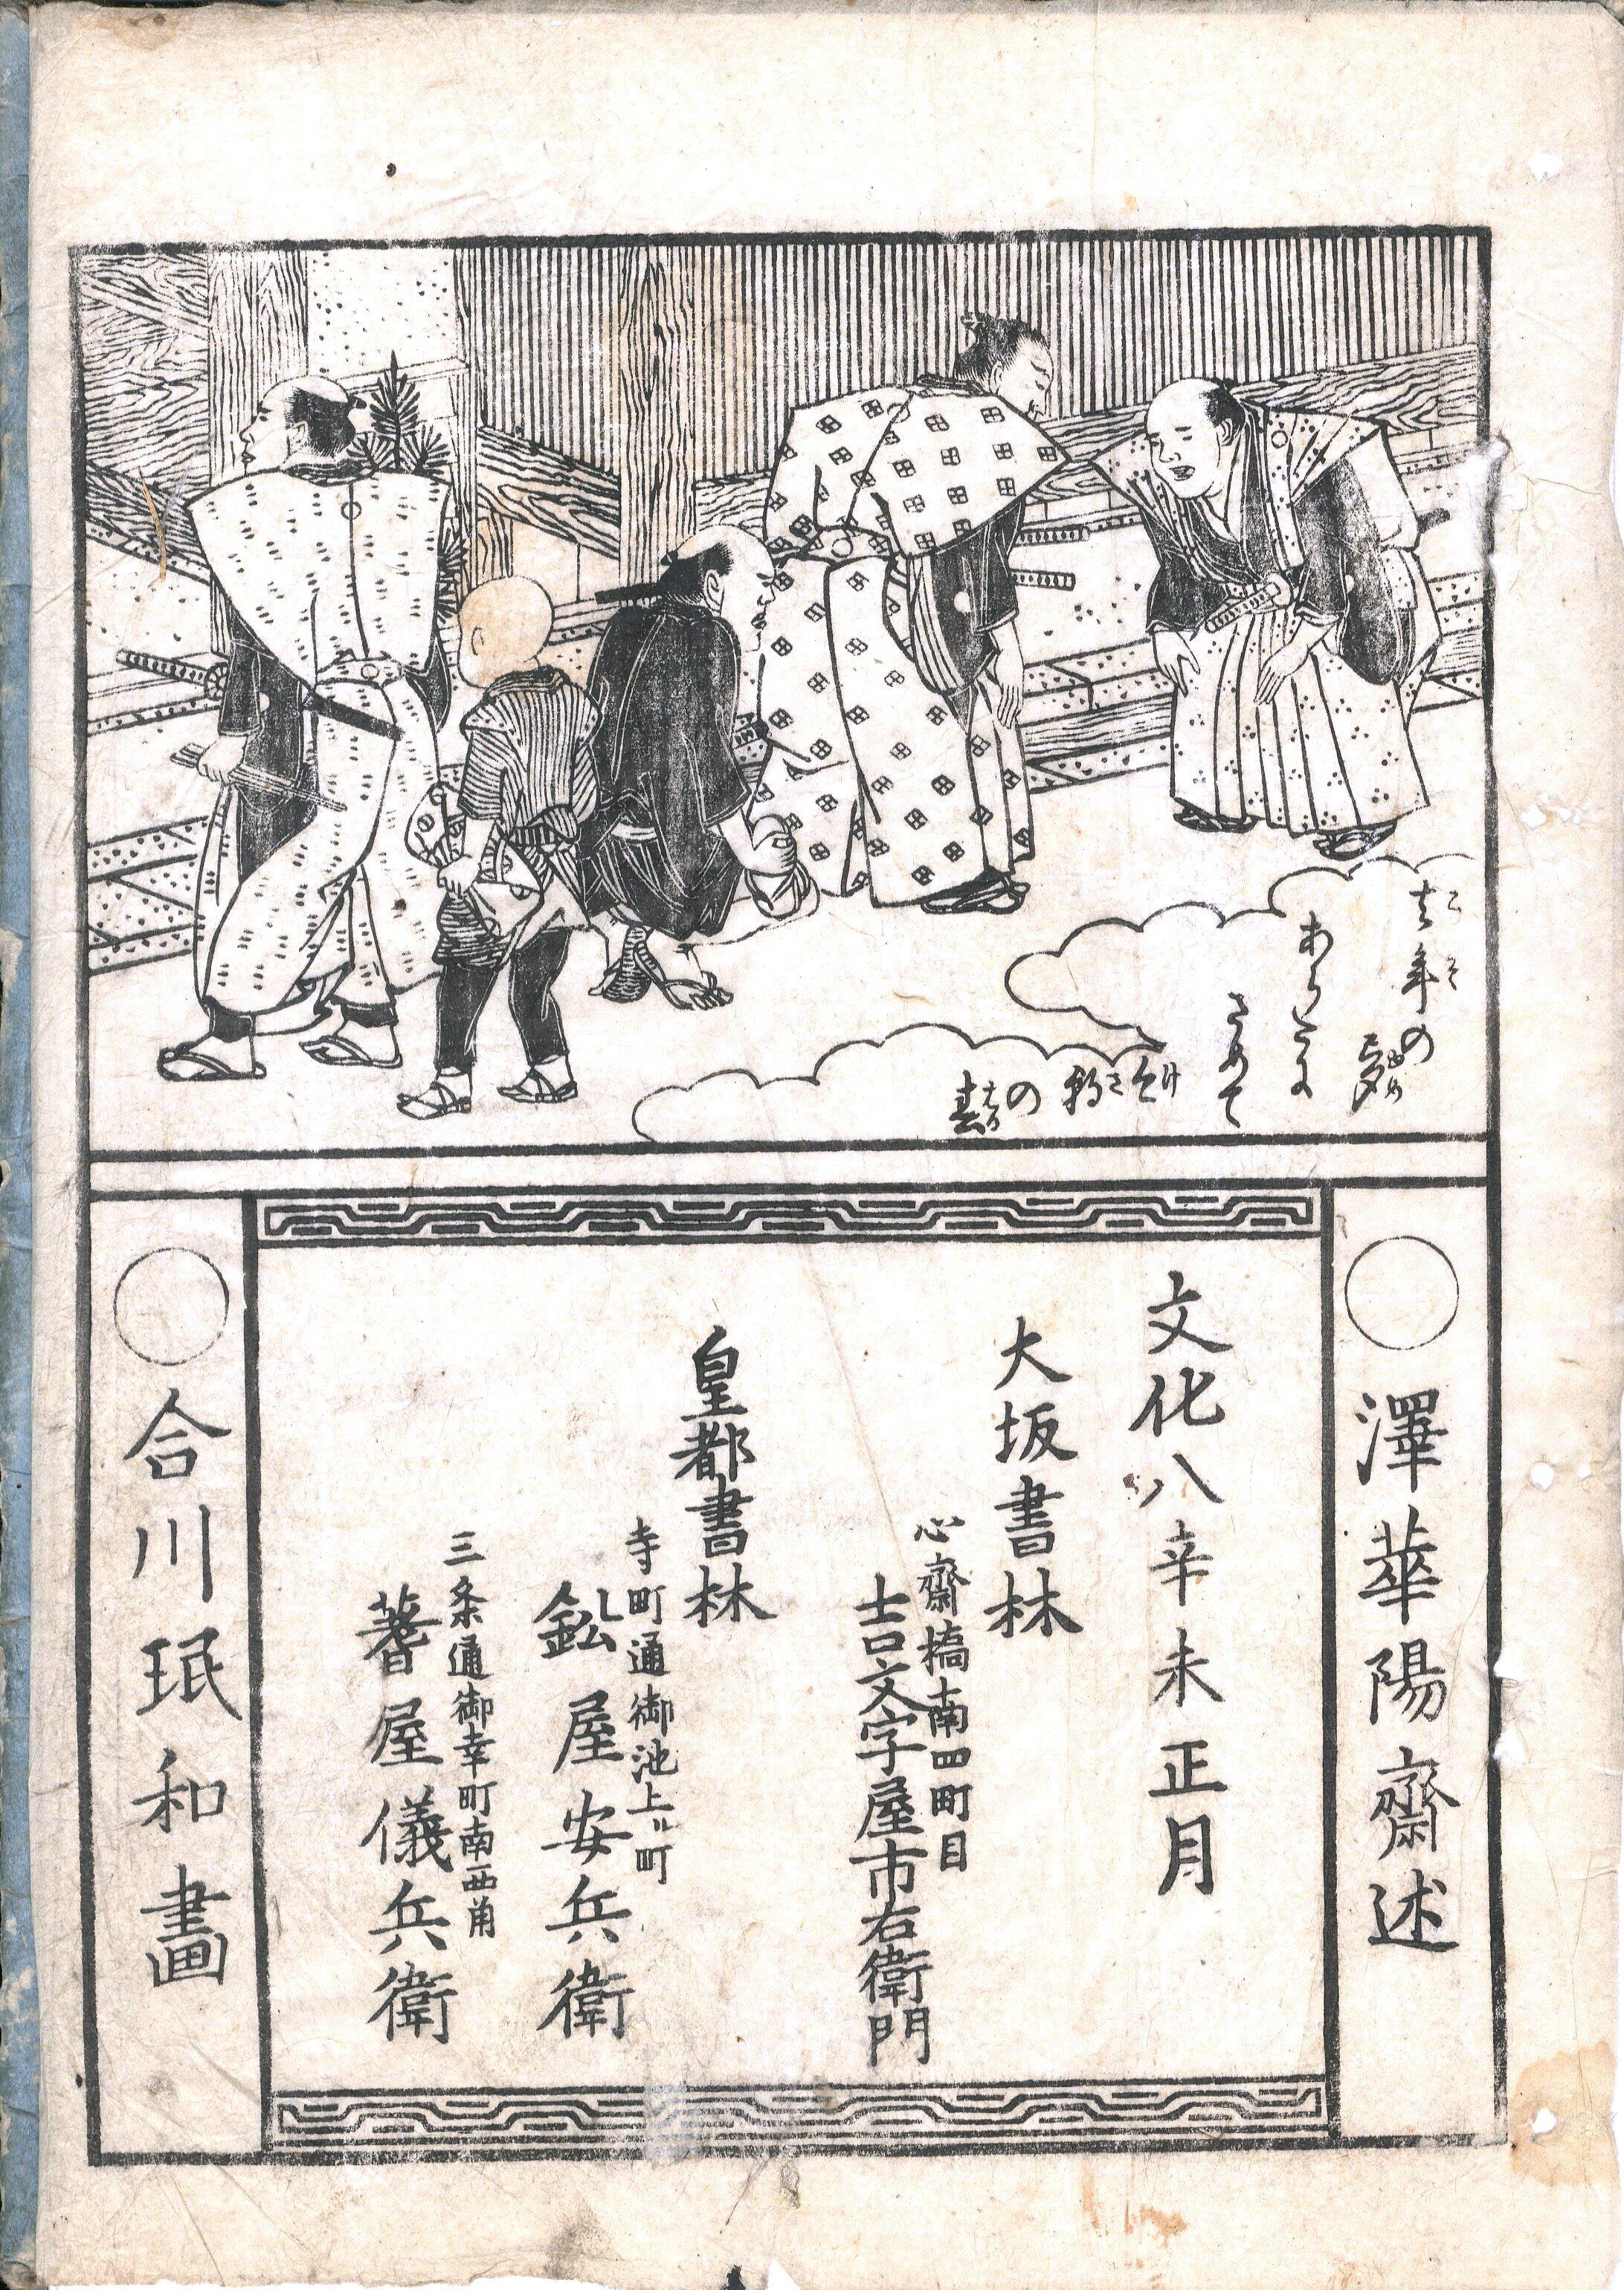 去年の
こぞ
夢
ゆめ
あらたに
さめて
今朝の
けさ
春
はる
○澤華陽齋述
文化八辛未正月
大坂書林
心齋橋南四町目
吉文字屋市右衛門
皇都書林
寺町通御池上ル町
鈆屋安兵衛
三条通御幸町南西角
蓍屋儀兵衛
○合川珉和畫